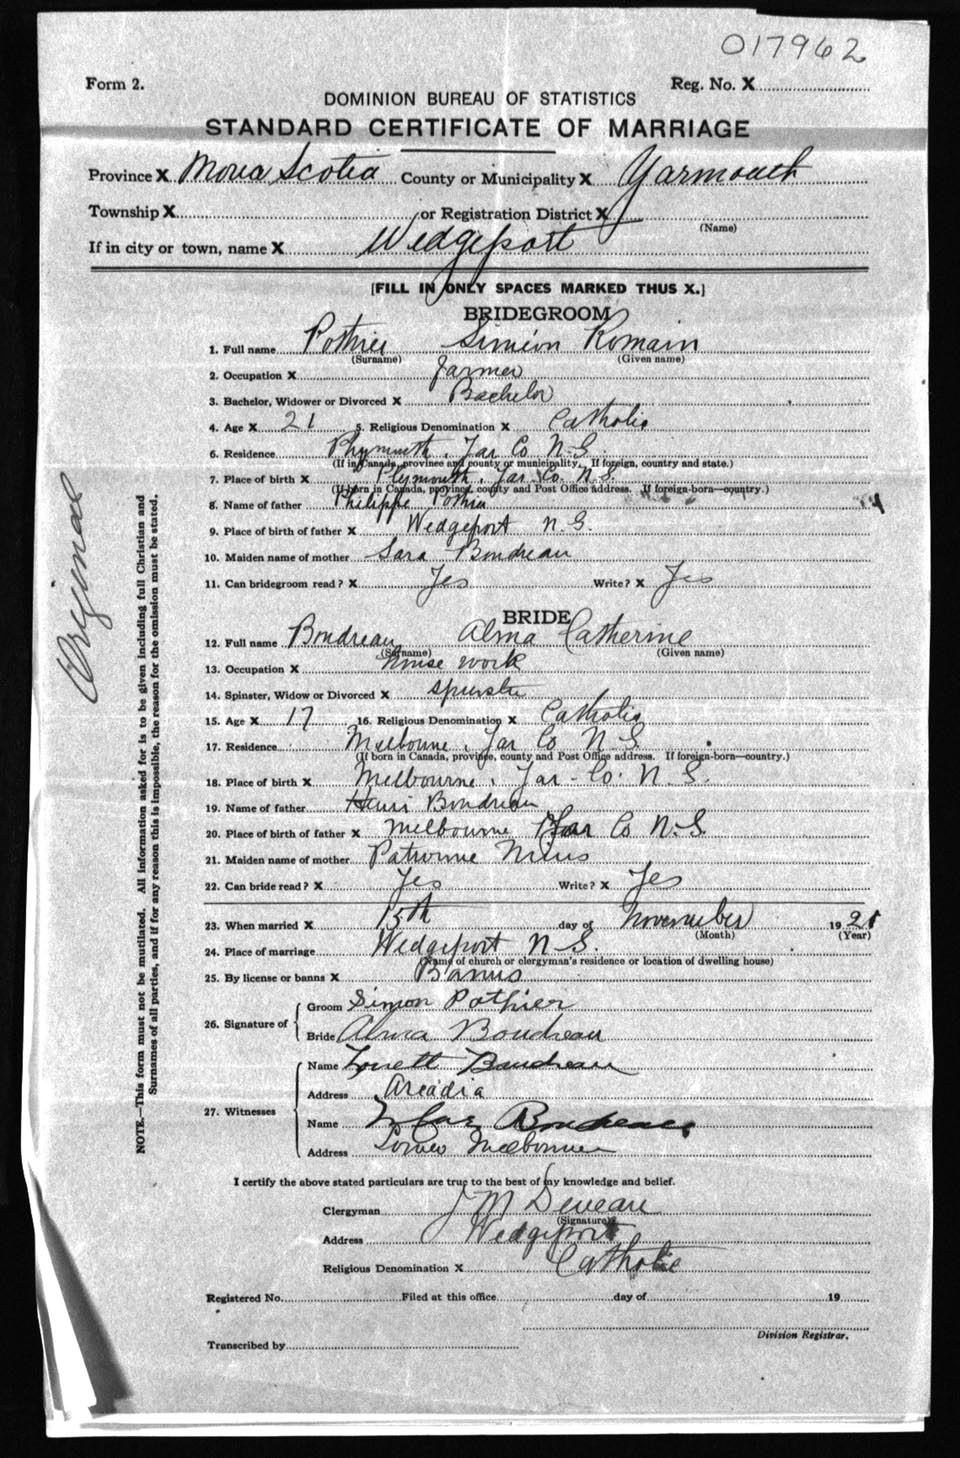 017962
Form 2.
Reg. No. X
DOMINION BUREAU OF STATISTICS
STANDARD CERTIFICATE OF MARRIAGE
Province X Nova Scotia County or Municipality X Yarmouth
Township X or Registration District X
(Name)
If in city or town, name X Wedgeport
[FILL IN ONLY SPACES MARKED THUS X.]
BRIDEGROOM
1. Full name Pothier Siméon Romain
(Surname) (Given name)
2. Occupation X farmer
3. Bachelor, Widower or Divorced X Bachelor
4. Age X 21 5. Religious Denomination X Catholic
6. Residence Plymouth, Yar Co N-S.
(If in Canada, province and county or municipality. If foreign, country and state.)
7. Place of birth X Plymouth, Yar Co. N.S.
(If born in Canada, province, county and Post Office address. If foreign-born—country.)
8. Name of father Philippe Pothier
9. Place of birth of father X Wedgeport N.S.
10. Maiden name of mother Sara Boudreau
11. Can bridegroom read? X Yes Write? X Yes
BRIDE
12. Full name Boudreau Alma Catherine
(Surname) (Given name)
13. Occupation X house work
14. Spinster, Widow or Divorced X spinster
15. Age X 17 16. Religious Denomination X Catholic
17. Residence Melbourne, Yar Co N S.
(If born in Canada, province, county and Post Office address. If foreign-born—country.)
18. Place of birth X Melbourne, Yar-Co. N S.
19. Name of father Henri Boudreau
20. Place of birth of father X Melbourne Yar Co N.S.
21. Maiden name of mother
22. Can bride read? X Yes Write? X Yes
23. When married X 15th day of November 1921
(Month) (Year)
24. Place of marriage Wedgeport N S.
(Name of church or clergyman's residence or location of dwelling house)
25. By license or banns X Banns
26. Signature of
Groom Simon Pothier
Bride Alma Boudreau
27. Witnesses
Name Boudreau
Address Arcadia
Name Boudreau
Address Melbourne
I certify the above stated particulars are true to the best of my knowledge and belief.
Clergyman J M Deveau
(Signature)
Address Wedgeport
Religious Denomination X Catholic
Registered No. Filed at this office day of 19
Division Registrar.
Transcribed by
Original
NOTE.—This form must not be mutilated. All information asked for is to be given including full Christian and
Surnames of all parties, and if for any reason this is impossible, the reason for the omission must be stated.